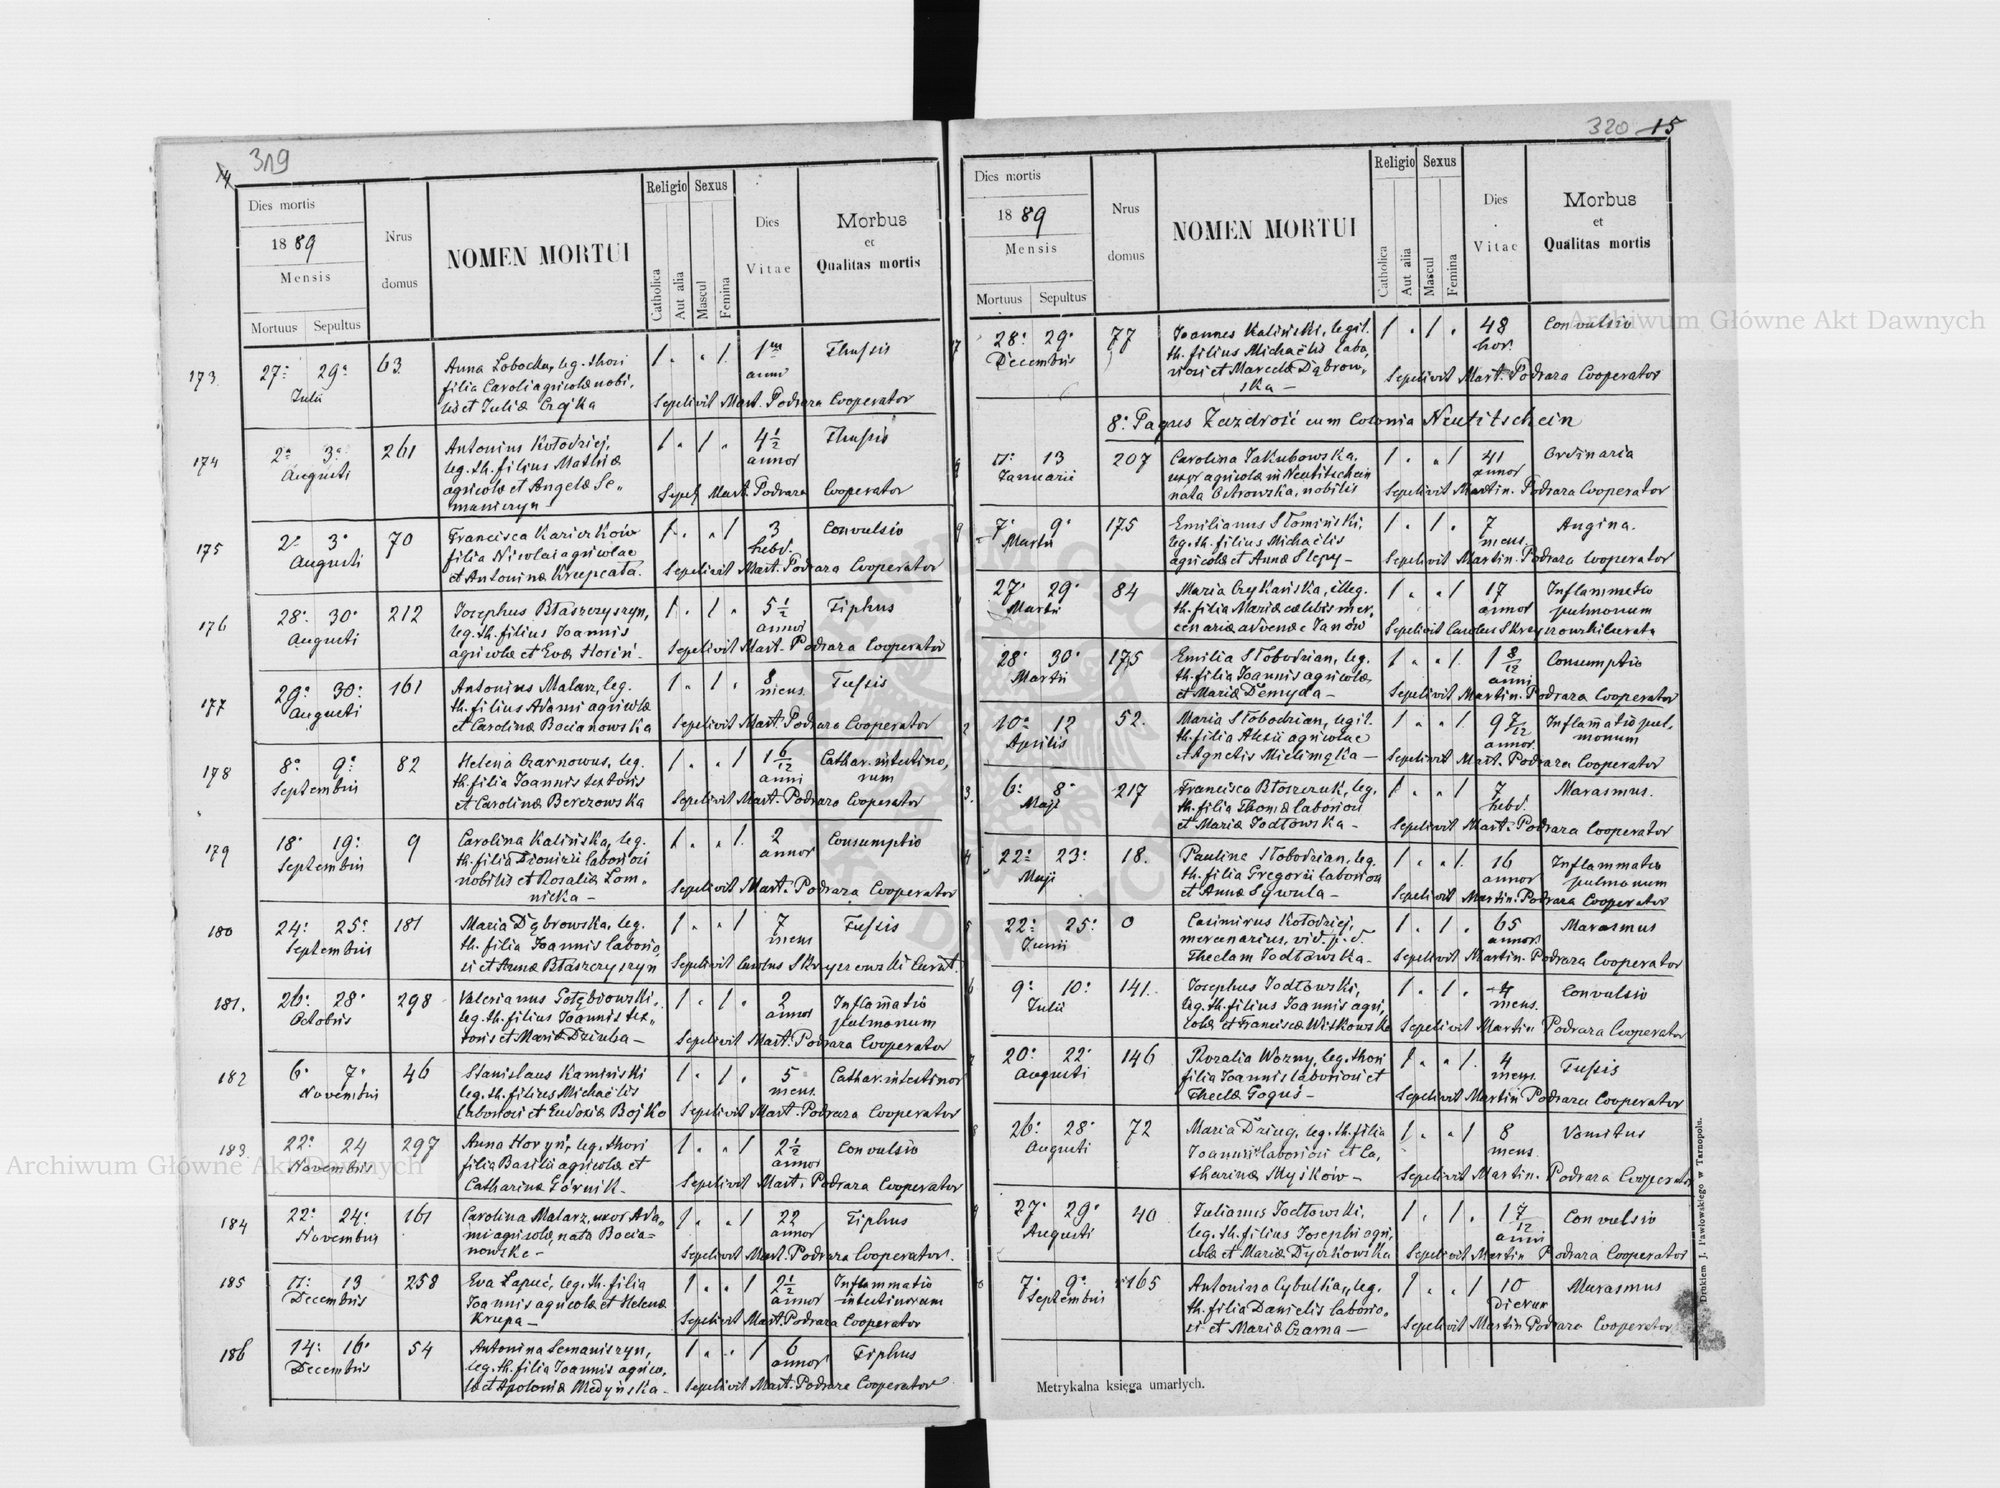 14 319
Dies mortis
1889
Mensis
Mortuus Sepultus
Nrus
domus
NOMEN MORTUI
Religio Sexus
Catholica
Aut alia
Mascul
Femina
Dies
Vitae
Morbus
et
Qualitas mortis
173. 27. 29. 63. Anna Lobocka, leg. thori
Julii
filia Caroli agricolæ nobi,
lis et Juliæ Czajka
1 anni
Thussis
Sepelivit Mart. Podrara Cooperator
174 2. 3. 261 Antonius Kołodziej,
Augusti
leg. th. filius Mathiæ
agricolæ et Angelæ Se,,
maniszyn
4½ annor
Thussis
Sepel Mart. Podrara Cooperator
175 2. 3. 70 Francisca Kaziorków
Augusti
filia Nicolai agricolae
et Antoninæ Krupcata.
3 hebd.
Convulsio
Sepelivit Mart. Podrara Cooperator
176 28. 30. 212 Josephus Błaszczyszyn,
Augusti
leg. th. filius Joannis
agricolæ et Evæ Horin -
5½ annor
Tiphus
Sepelivit Mart. Podrara Cooperator
177 29. 30. 161 Antonius Malarz, leg.
Augusti
th. filius Adami agricolæ
et Carolinæ Bocianowska
8 mens.
Tussis
Sepelivit Mart. Podrara Cooperator
178 8. 9. 82 Helena Czarnowus, leg.
Septembris
th. filia Joannis textoris
et Carolinæ Berezowska
1 6/12 anni
Cathar. intestino,
rum
Sepelivit Mart. Podrara Cooperator
179 18. 19. 9 Carolina Kalińska, leg.
Septembris
th. filia Dionizii laboriosi
nobilis et Rosaliæ Lom,,
nicka -
2 annor
Consumptio
Sepelivit Mart. Podrara Cooperator
180 24. 25. 181 Maria Dąbrowska, leg.
Septembris
th. filia Joannis laborio,
si et Annæ Błaszczyszyn
7 mens
Tussis
Sepelivit Carolus Skrzyszowski Curat.
181. 26. 28. 298 Valerianus Gołębiowski,
Octobris
leg. th. filius Joannis tex,,
toris et Mariæ Dziuba -
2 annor
Inflam̃atio
pulmonum
Sepelivit Mart. Podrara Cooperator
182 6. 7. 46 Stanislaus Kaminski
Novembris
leg. th. filius Michaëlis
laboriosi et Eudoxiæ Bojko
5 mens.
Cathar. intestinor
Sepelivit Mart. Podrara Cooperator
183. 22. 24 297 Anna Horyń, leg. thori
Novembris
filia Basilii agricolæ et
Catharinæ Górnik -
2½ annor
Convulsio
Sepelivit Mart. Podrara Cooperator
184 22. 24. 161 Carolina Malarz, uxor Ada,,
Novembris
mi agricolæ, nata Bocia=
nowska -
22 annor
Tiphus
Sepelivit Mart. Podrara Cooperator.
185 11. 13 258 Eva Łapuć, leg. th. filia
Decembris
Joannis agricolæ et Helenæ
Krupa -
2½ annor
Inflammatio
intestinorum
Sepelivit Mart. Podrara Cooperator
186 14. 16. 54 Antonina Semaniszyn,
Decembris
leg. th. filia Joannis agrico,
læ et Apoloniæ Medyńska -
6 annor
Tiphus
Sepelivit Mart. Podrara Cooperator
320 15
Dies mortis
1889
Mensis
Mortuus Sepultus
Nrus
domus
NOMEN MORTUI
Religio Sexus
Catholica
Aut alia
Mascul
Femina
Dies
Vitae
Morbus
et
Qualitas mortis
28. 29. 77 Joannes Kaliński, legit.
Decembris
th. filius Michaëlis labo,
riosi et Marcelæ Dąbrow,
ska -
48 hor.
Convulsio
Sepelivit Mart. Podrara Cooperator
8. Pagus Zazdrość cum Colonia Neutitschein
11. 13 207 Carolina Jakubowska,
Januarii
uxor agricolæ in Neutitschein
nata Ostrowska, nobilis
41 annor
Ordinaria
Sepelivit Martin. Podrara Cooperator
7. 9. 175 Emilianus Słomiński,
Martii
leg. th. filius Michaëlis
agricolæ et Annæ Slepy -
7 mens.
Angina.
Sepelivit Martin. Podrara Cooperator
27. 29. 84 Maria Czykańska, illeg.
Martii
th. filia Mariæ cælibis mer,
cenariæ advenæ e Janów
17 annor
Inflammatio
pulmonum
Sepelivit Carolus Skrzyszowski Curatus
28. 30. 175 Emilia Słobodzian, leg.
Martii
th. filia Joannis agricolæ
et Mariæ Demyda -
1 8/12 anni
Consumptio
Sepelivit Martin. Podrara Cooperator
10. 12 52. Maria Słobodzian, legit.
Aprilis
th. filia Alexii agricolae
et Agnetis Mielimąka -
9 7/12 annor.
Inflam̃atio pul,
monum
Sepelivit Mart. Podrara Cooperator
6. 8. 217 Francisca Błoszczuk, leg.
Maji
th. filia Thomæ laboriosi
et Mariæ Jodłowska -
7 hebd.
Marasmus.
Sepelivit Mart. Podrara Cooperator
22. 23. 18. Paulina Słobodzian, leg.
Maji
th. filia Gregorii laboriosi
et Annæ Sywula -
16 annor
Inflammatio
pulmonum
Sepelivit Martin. Podrara Cooperator
22. 25. 0 Casimirus Kołodziej,
Junii
mercenarius, vid. p. d.
Theclam Jodłowska -
65 annor.
Marasmus
Sepelivit Martin. Podrara Cooperator
9. 10. 141. Josephus Jodłowski,
Julii
leg. th. filius Joannis agri,
colæ et Franciscæ Witkowska
4 mens.
Convulsio
Sepelivit Martin Podrara Cooperator
20. 22. 146 Rozalia Wozny, leg. thori
Augusti
filia Joannis laboriosi et
Theclæ Goguś -
4 mens.
Tussis
Sepelivit Martin Podrara Cooperator
26. 28. 72 Maria Dziug, leg. th. filia
Augusti
Joannis laboriosi et Ca,
tharinæ Myśków -
8 mens.
Vomitus
Sepelivit Martin. Podrara Cooperator
27. 29. 40 Julianus Jodłowski,
Augusti
leg. th. filius Josephi agri,
colæ et Mariæ Dyczkowska
1 7/12 anni
Convulsio
Sepelivit Martin Podrara Cooperator
7. 9. 165 Antonina Cybulka, leg.
Septembris
th. filia Danielis laborio,
si et Mariæ Czarna -
10 dierum
Marasmus
Sepelivit Martin Podrara Cooperator
Metrykalna księga umarłych.
Drukiem J. Pawłowskiego w Tarnopolu.
Archiwum Główne Akt Dawnych
Archiwum Główne Akt Dawnych